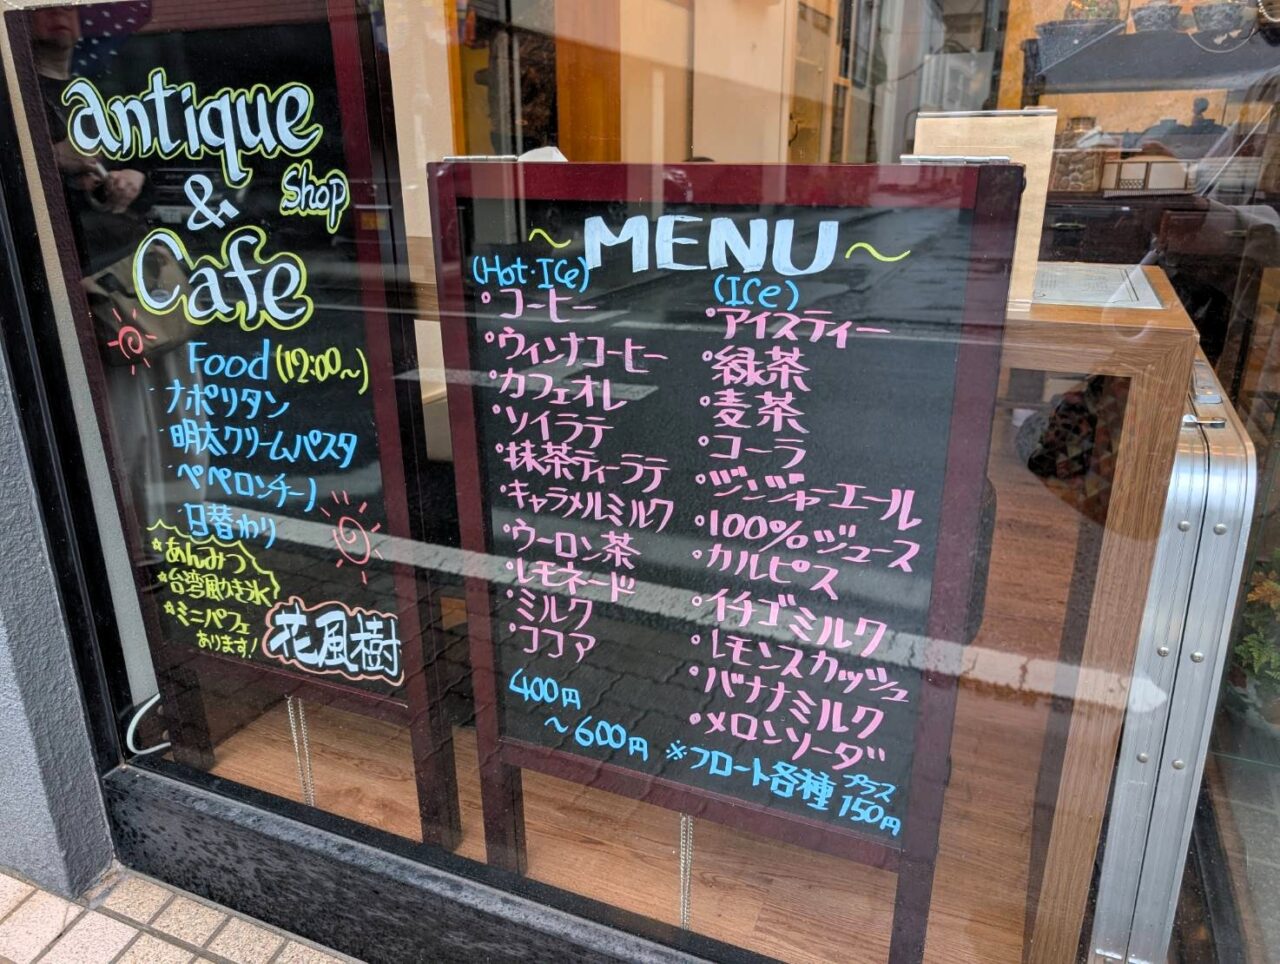 antique
Shop
&
Cafe
Food (12:00~)
・ナポリタン
・明太クリームパスタ
・ペペロンチーノ
・日替わり
☆あんみつ
☆台湾風かき氷
☆ミニパフェ
あります!
花風樹
~MENU~
(Hot・Ice)
・コーヒー
・ウィンナコーヒー
・カフェオレ
・ソイラテ
・抹茶ティーラテ
・キャラメルミルク
・ウーロン茶
・レモネード
・ミルク
・ココア
400円
~600円
(Ice)
・アイスティー
・緑茶
・麦茶
・コーラ
・ジンジャーエール
・100%ジュース
・カルピス
・イチゴミルク
・レモンスカッシュ
・バナナミルク
・メロンソーダ
※フロート各種プラス150円